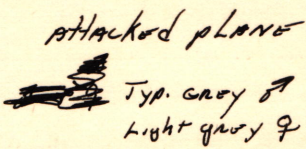 Attacked pLANE
Typ. GREY ♂
Light grey ♀